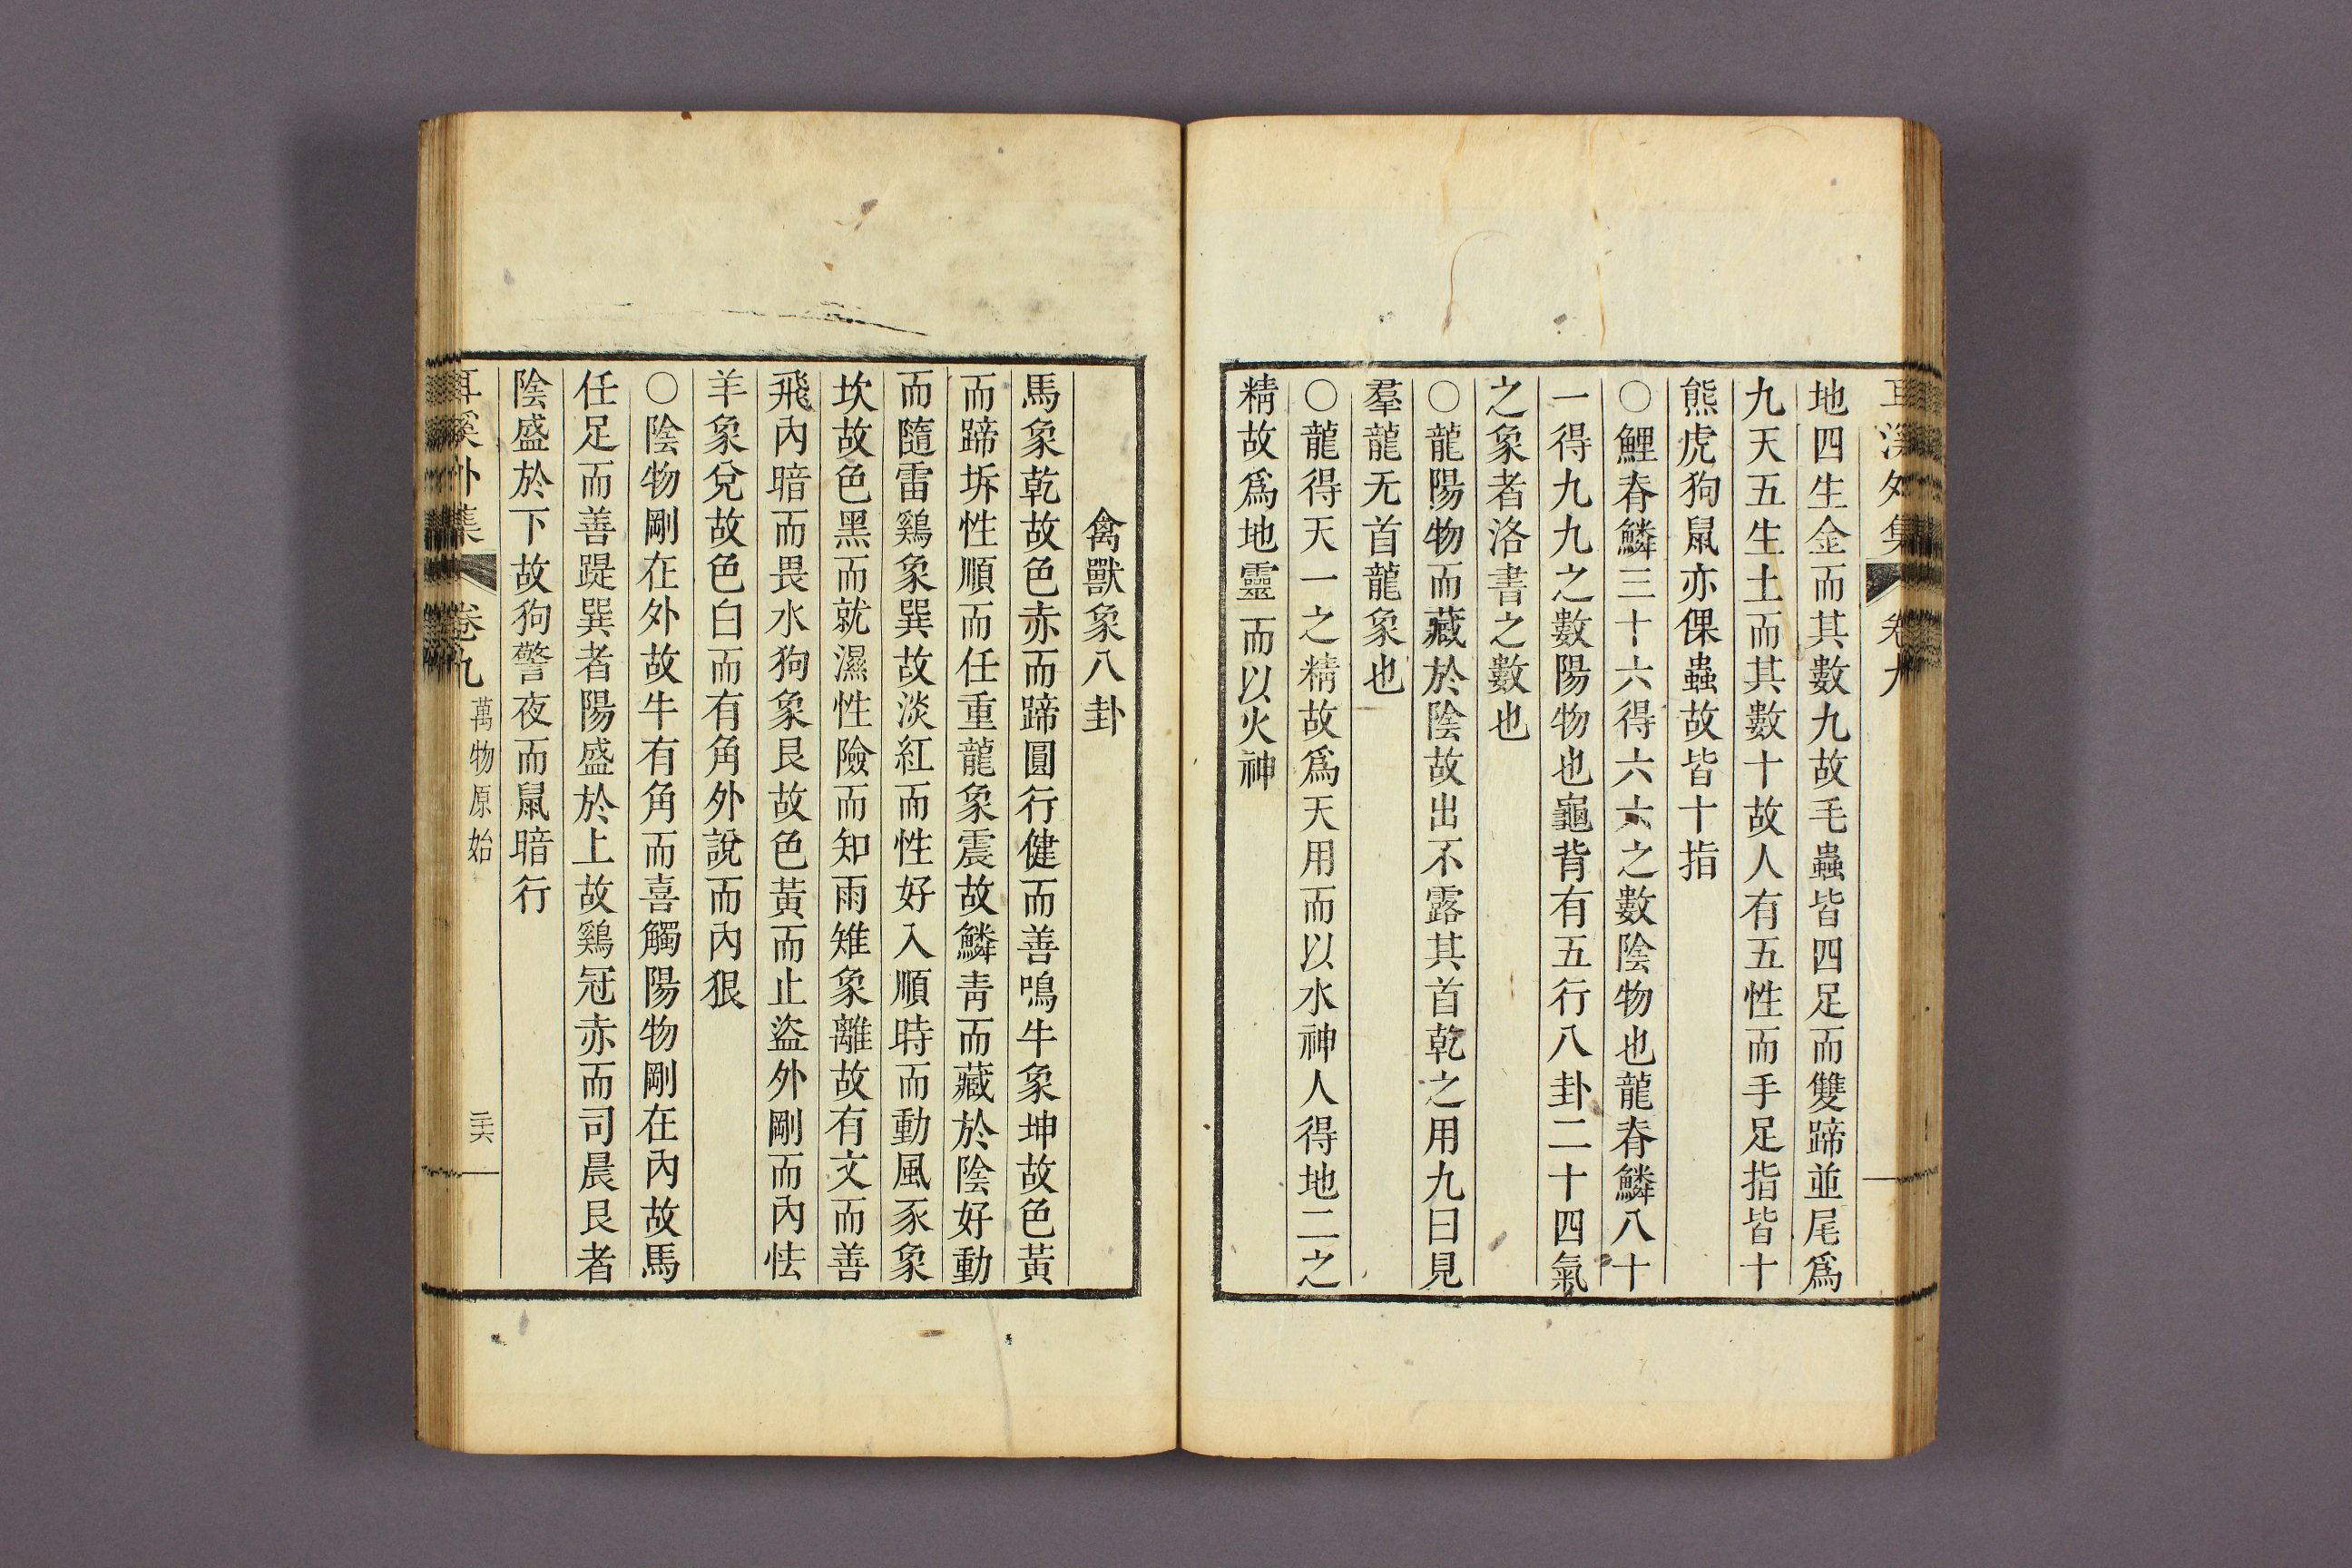 耳溪外集 卷九
地四生金而其數九故毛蟲皆四足而雙蹄並尾爲
九天五生土而其數十故人有五性而手足指皆十
熊虎狗鼠亦倮蟲故皆十指
○鯉脊鱗三十六得六六之數陰物也龍脊鱗八十
一得九九之數陽物也龜背有五行八卦二十四氣
之象者洛書之數也
○龍陽物而藏於陰故出不露其首乾之用九曰見
羣龍无首龍象也
○龍得天一之精故爲天用而以水神人得地二之
精故爲地靈而以火神
禽獸象八卦
馬象乾故色赤而蹄圓行健而善鳴牛象坤故色黃
而蹄坼性順而任重龍象震故鱗靑而藏於陰好動
而隨雷鷄象巽故淡紅而性好入順時而動風豕象
坎故色黑而就濕性險而知雨雉象離故有文而善
飛內暗而畏水狗象艮故色黃而止盜外剛而內怯
羊象兌故色白而有角外說而內狠
○陰物剛在外故牛有角而喜觸陽物剛在內故馬
任足而善踶巽者陽盛於上故鷄冠赤而司晨艮者
陰盛於下故狗警夜而鼠暗行
耳溪外集 卷九 萬物原始 二十六